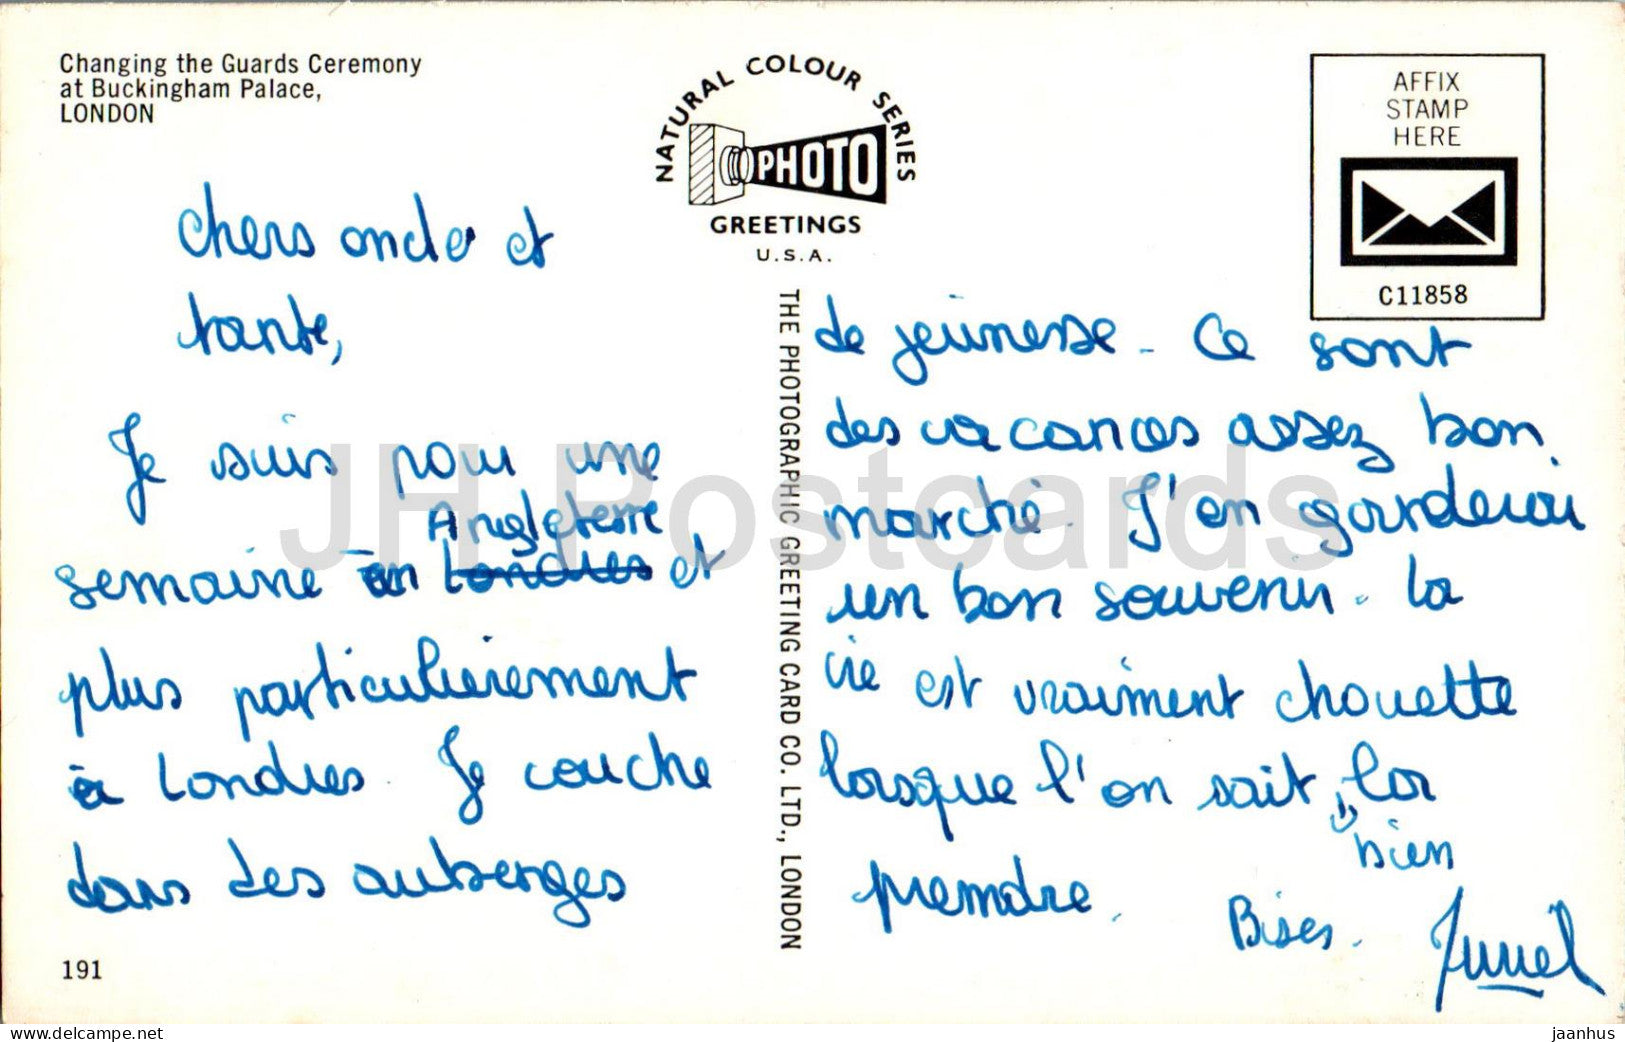 Changing the Guards Ceremony
at Buckingham Palace,
LONDON
NATURAL COLOUR SERIES
PHOTO
GREETINGS
U.S.A.
AFFIX
STAMP
HERE
C11858
chers oncle et
tante,
Je suis pour une
Angleterre
semaine en Londres et
plus particulièrement
à Londres. Je couche
dans des auberges
191
THE PHOTOGRAPHIC GREETING CARD CO. LTD., LONDON
de jeunesse - Ce sont
des vacances assez bon
marché. J'en garderai
un bon souvenir. la
vie est vraiment chouette
lorsque l'on sait, la
bien
prendre.
Bises.
JH Postcards
www.delcampe.net
jaanhus